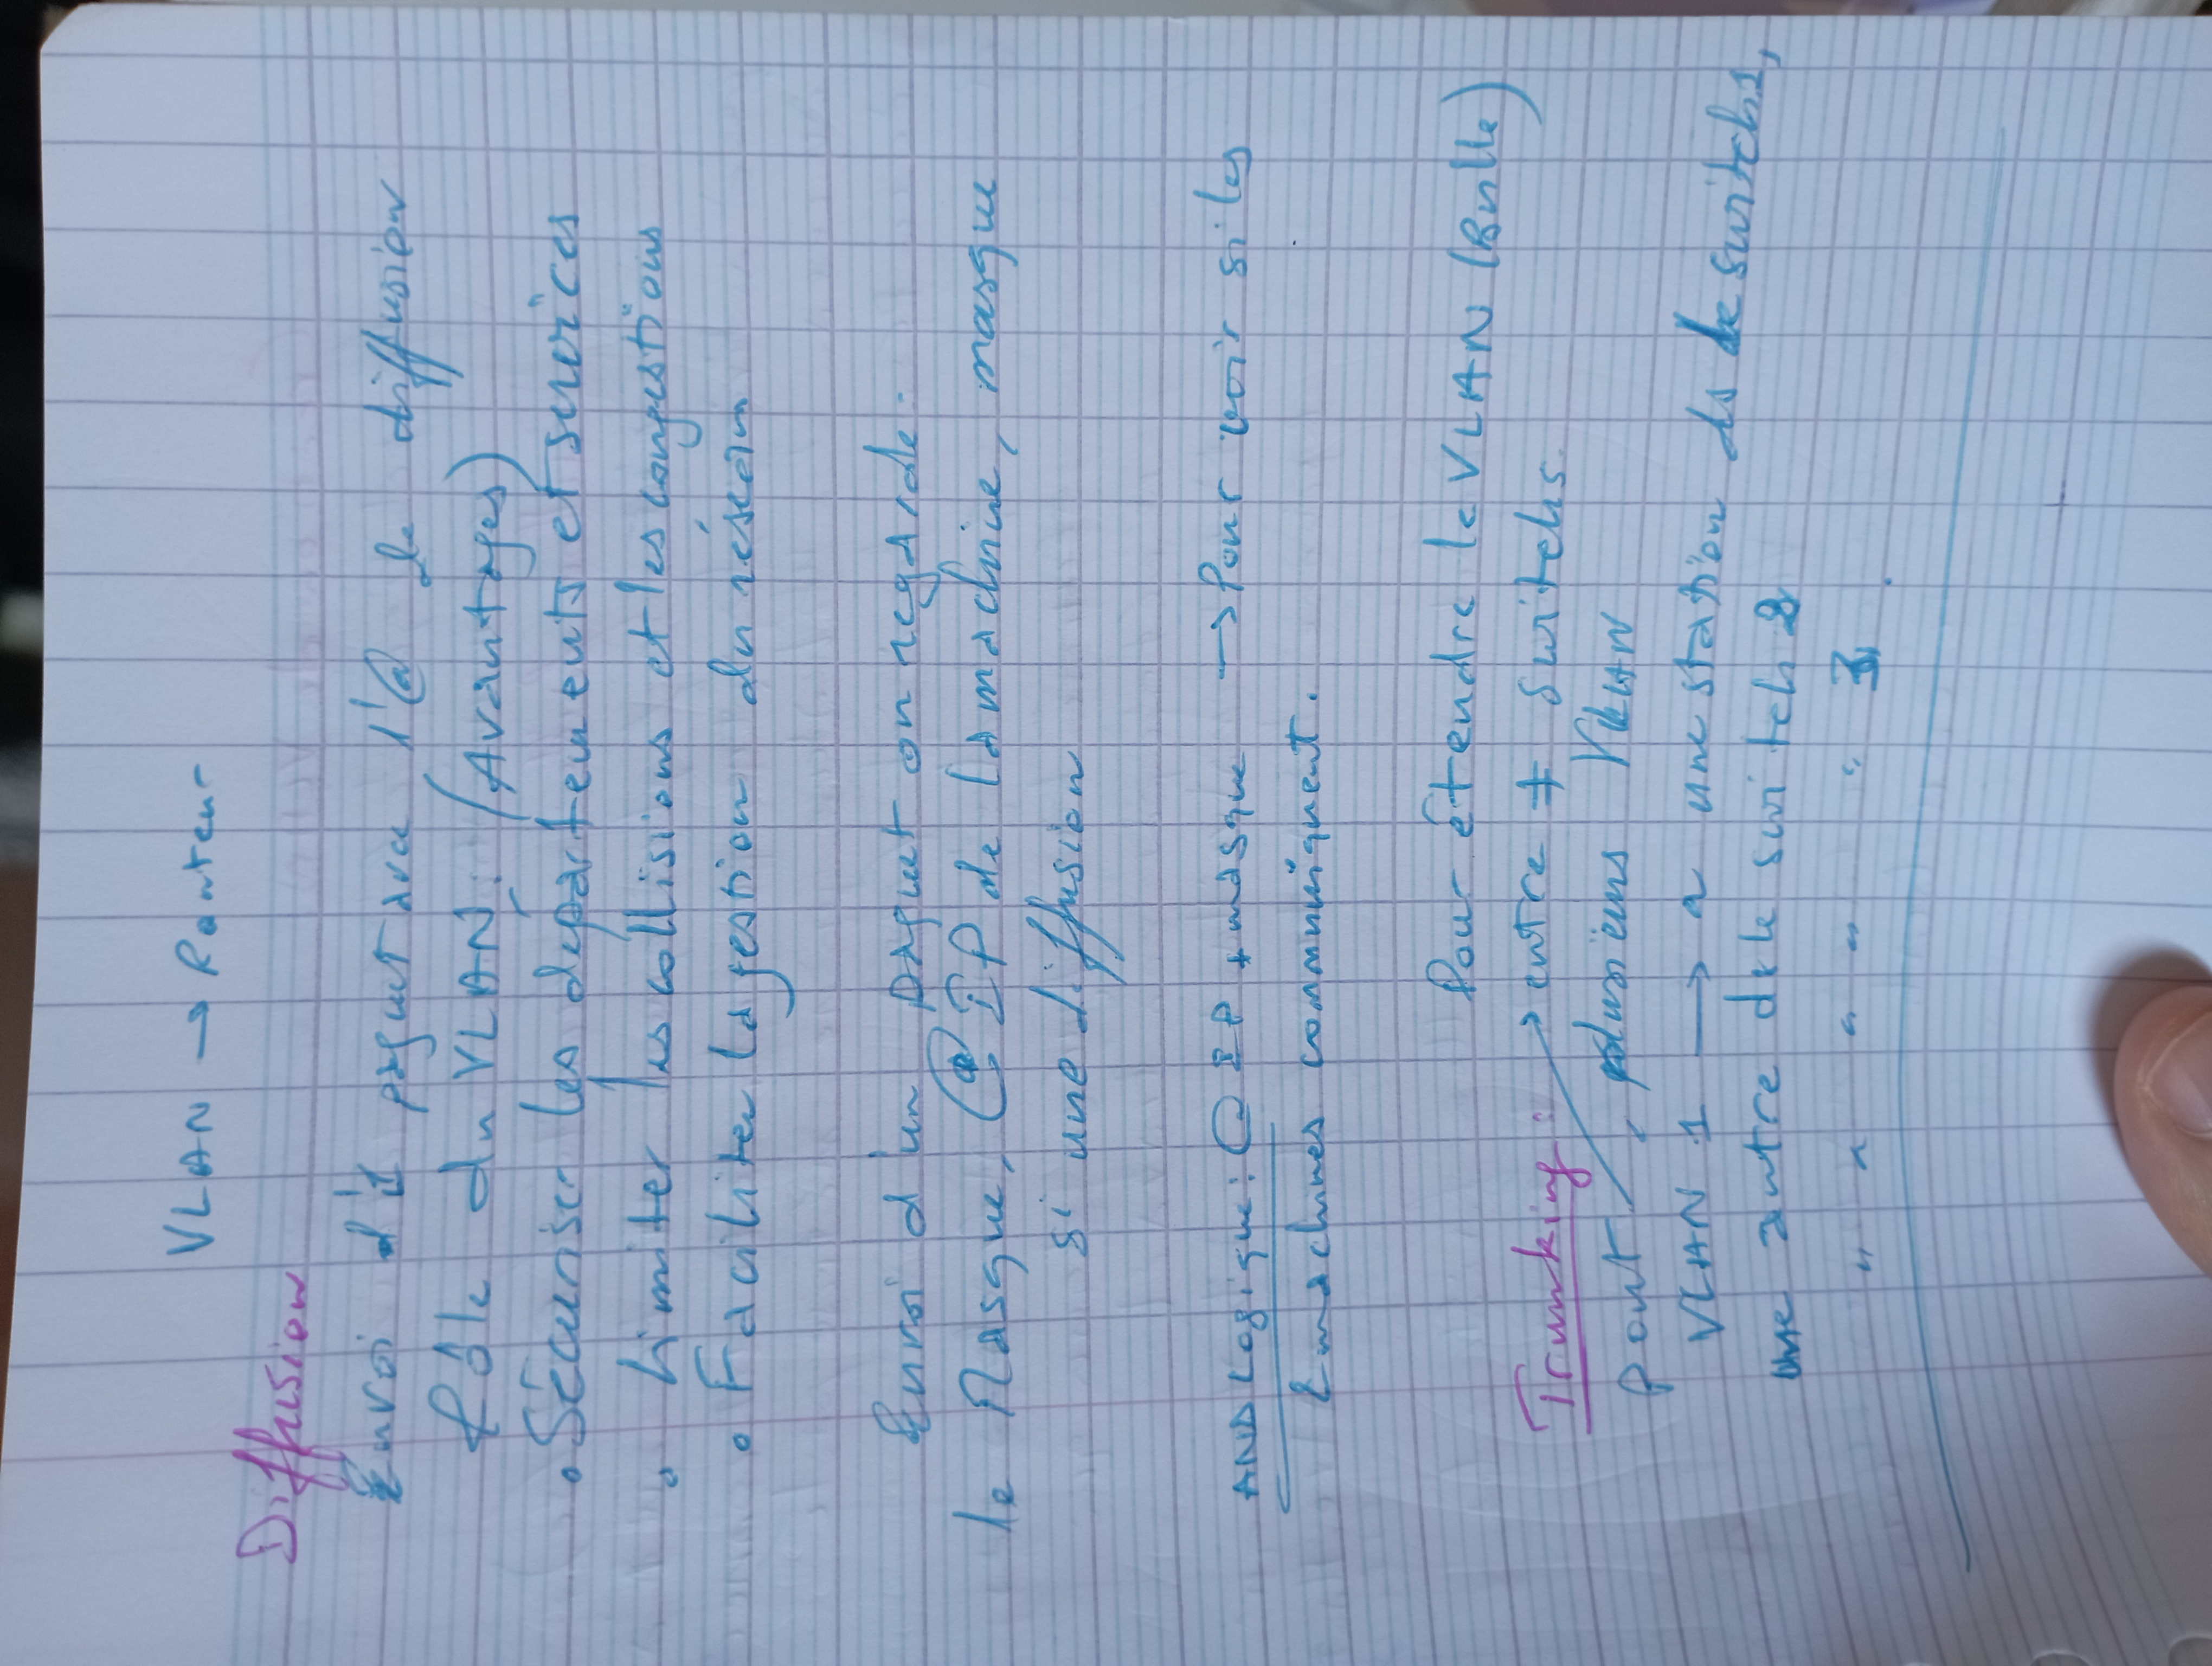 VLAN → Routeur
Diffusion
Envoi d'1 paquet avec l'@ de diffusion
Rôle du VLAN : (Avantages)
• Sécuriser les départements et services
• Limiter les collisions et les congestions
• Faciliter la gestion du réseau
Envoi d'un paquet on regarde :
le Masque, @ IP de la machine, masque
si une diffusion
AND Logique : @ IP + masque → Pour voir si les
2 machines communiquent.
Pour étendre le VLAN (Bulle)
Trunking : → entre ≠ switchs.
pont plusieurs VLAN
VLAN 1 → a une station ds le switch 1,
une autre ds le switch 2
" " " " " 3.